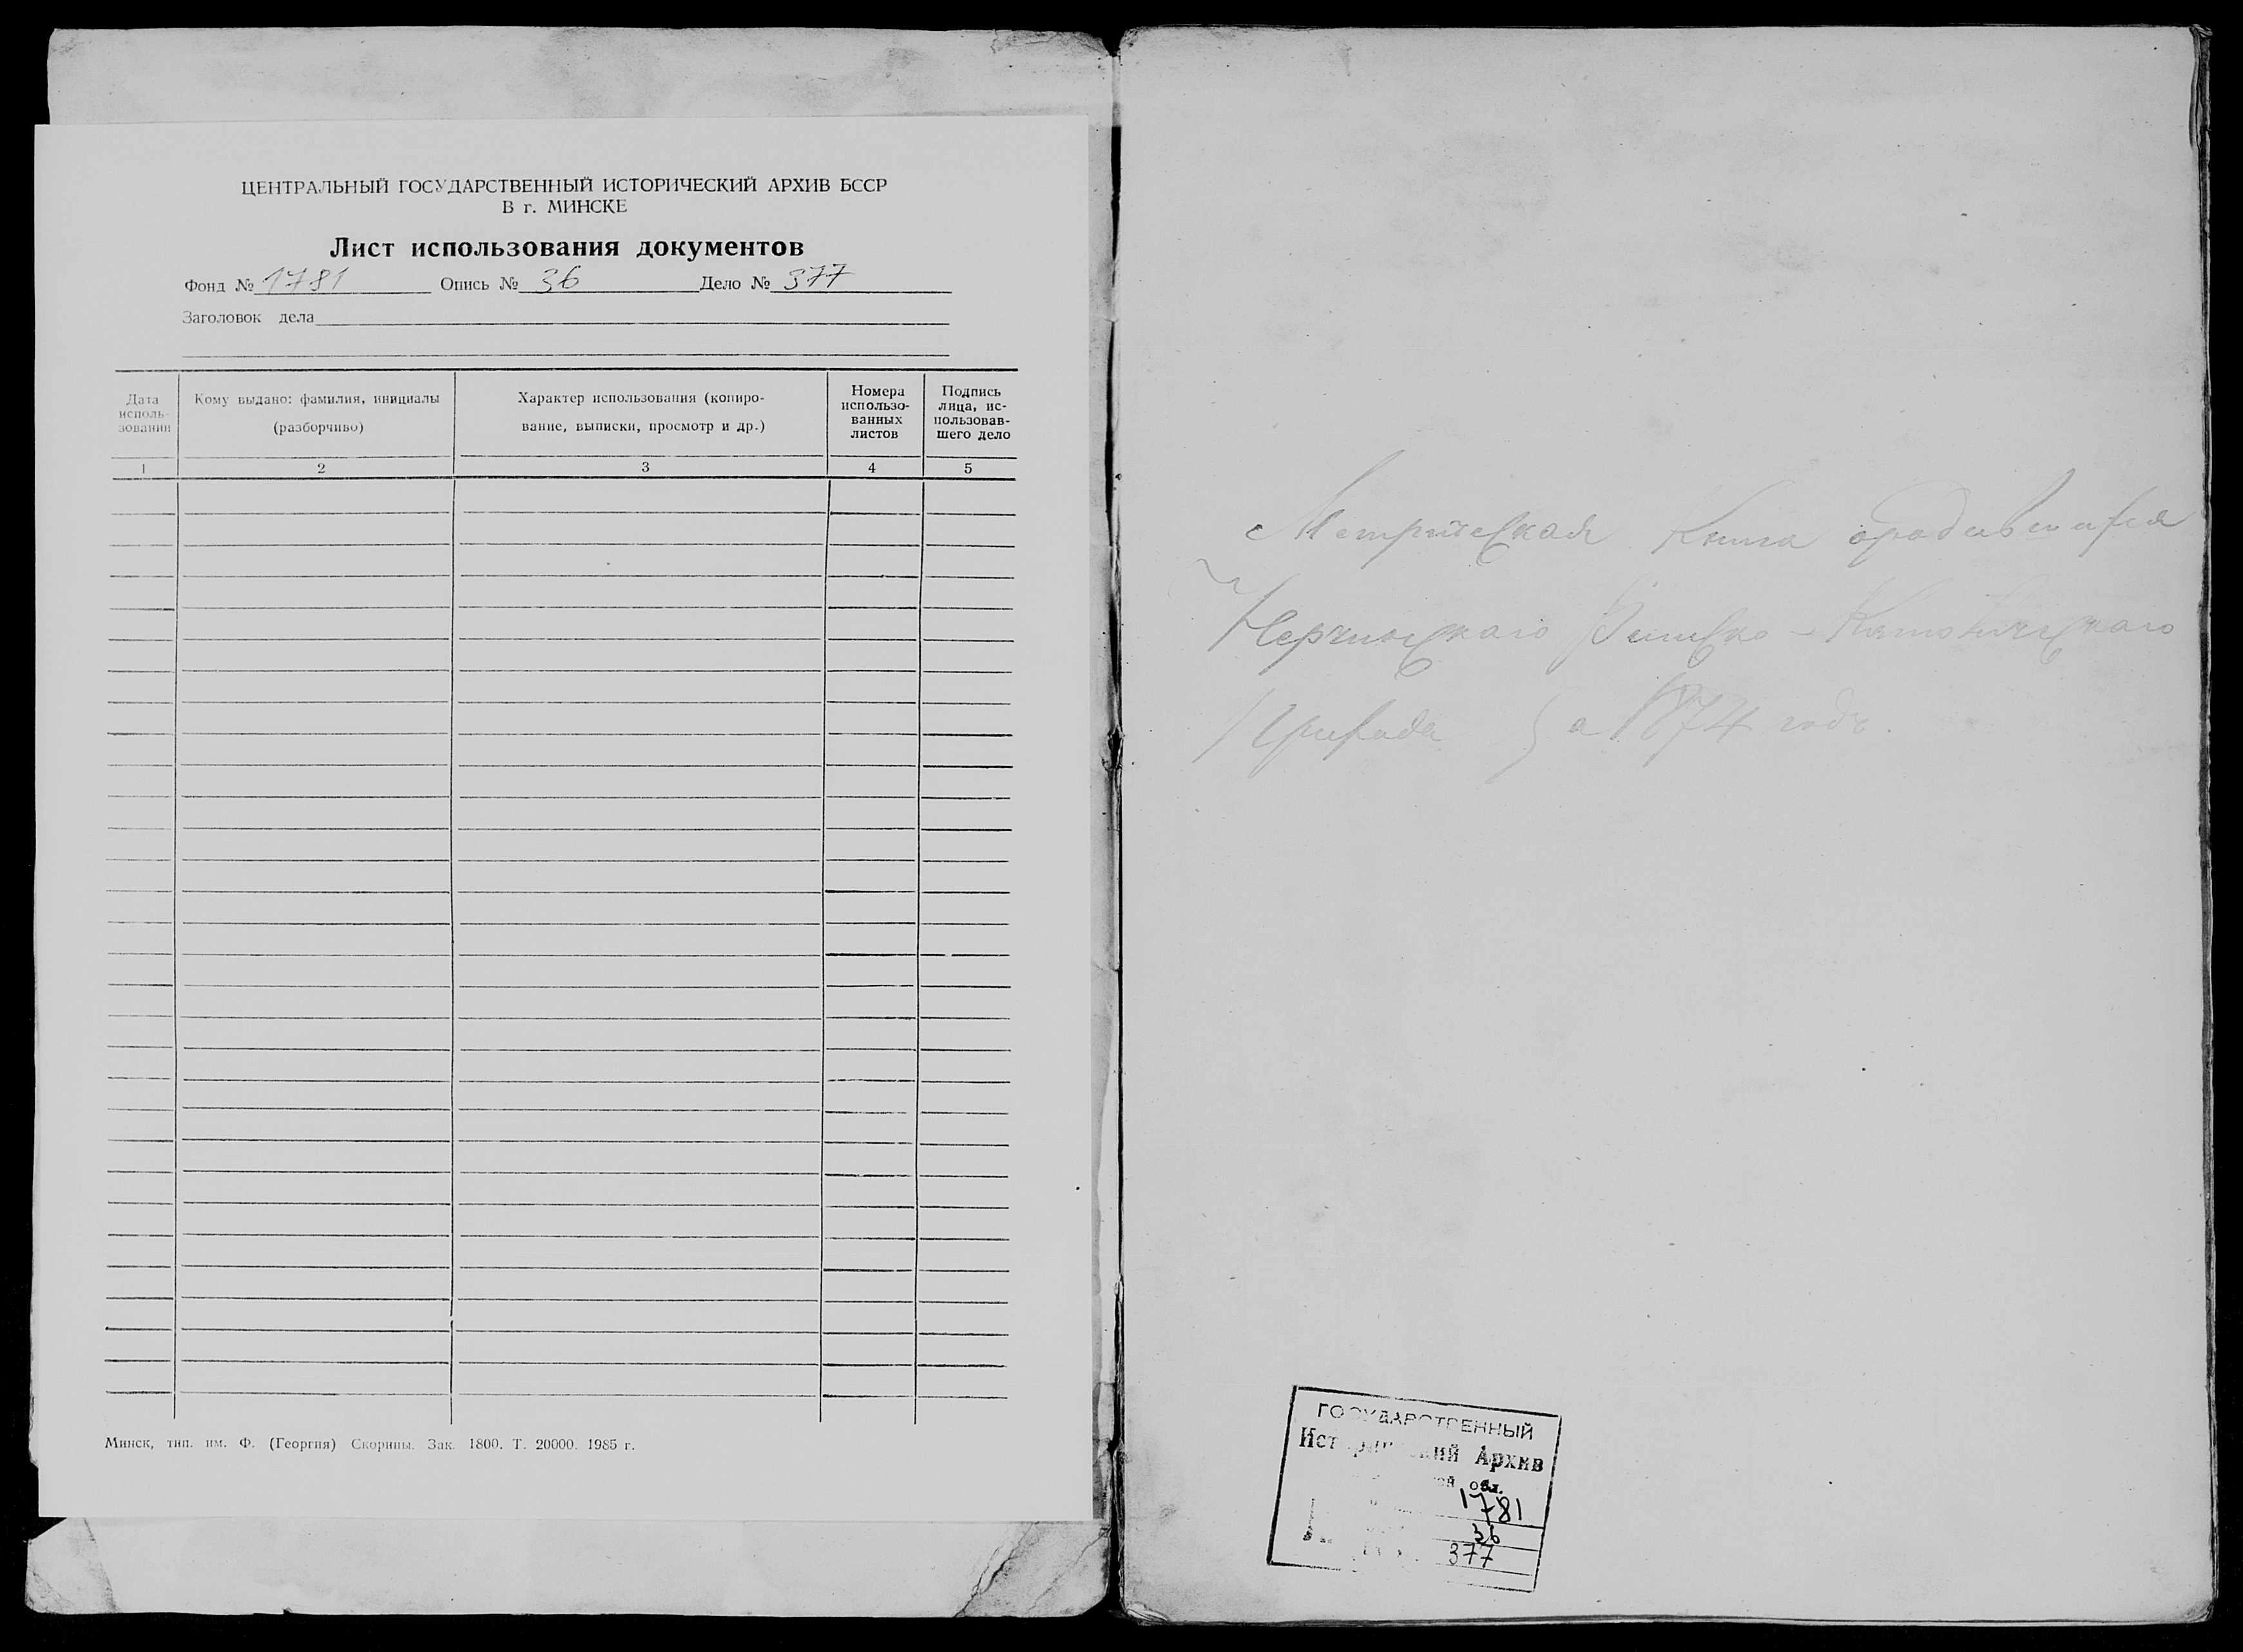 ЦЕНТРАЛЬНЫЙ ГОСУДАРСТВЕННЫЙ ИСТОРИЧЕСКИЙ АРХИВ БССР
В г. МИНСКЕ
Лист использования документов
Фонд № 1781 Опись № 36 Дело № 377
Заголовок дела
Дата исполь-зования
Кому выдано: фамилия, инициалы
(разборчиво)
Характер использования (копиро-
вание, выписки, просмотр и др.)
Номера
использо-
ванных
листов
Подпись
лица, ис-
пользовав-
шего дело
1 2 3 4 5
Минск, тип. им. Ф. (Георгия) Скорины. Зак. 1800. Т. 20000. 1985 г.
Метрическая Книга ородившихся
Римско-Католическаго
Прихода За 1874 годъ.
ГОСУДАРСТВЕННЫЙ
Исторический Архив
обл.
1781
36
377